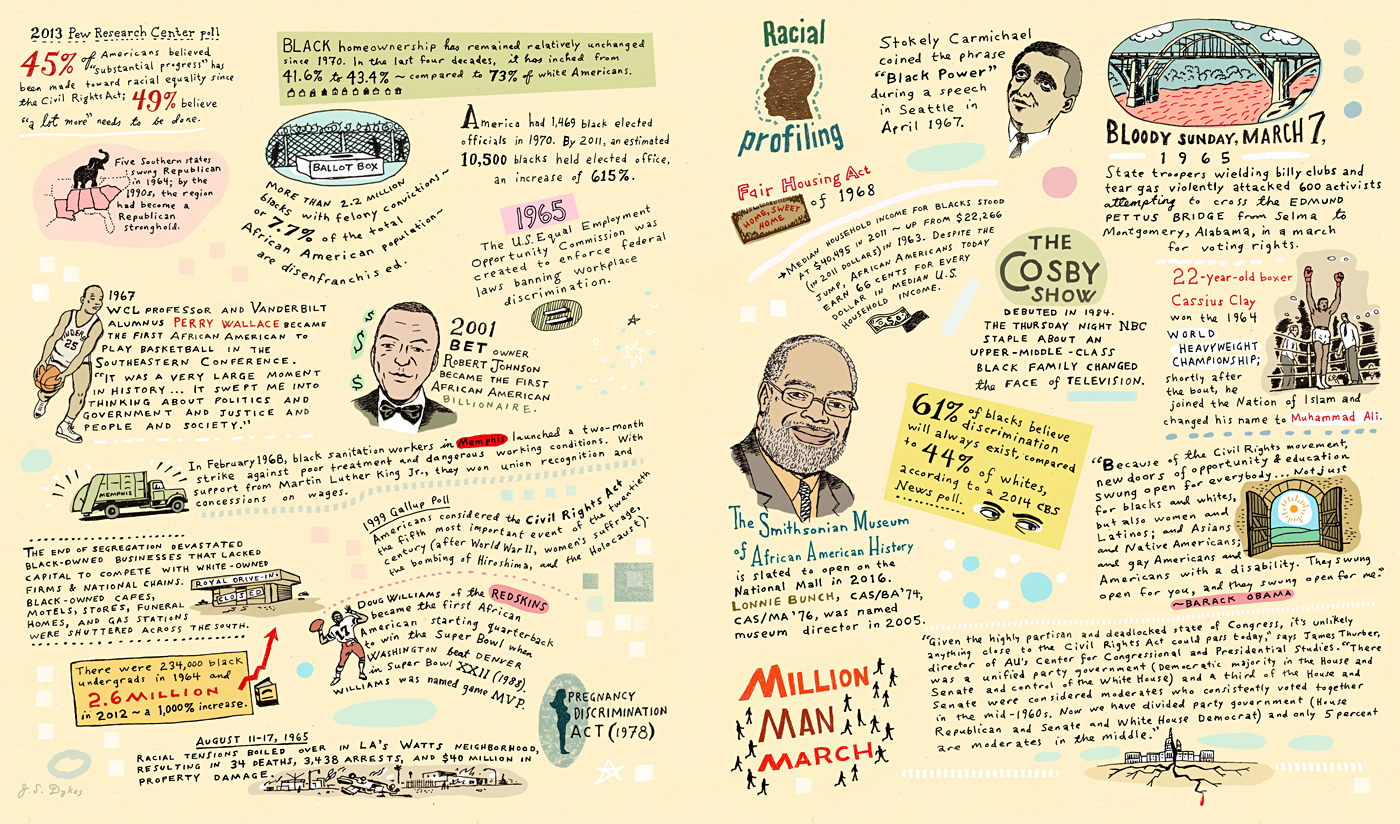 2013 Pew Research Center poll
45% of Americans believed
"substantial progress" has
been made toward racial equality since
the Civil Rights Act; 49% believe
"a lot more" needs to be done.
BLACK homeownership has remained relatively unchanged
since 1970. In the last four decades, it has inched from
41.6% to 43.4% ~ compared to 73% of white Americans.
Five Southern states
swung Republican
in 1964; by the
1990s, the region
had become a
Republican
stronghold.
BALLOT BOX
MORE THAN 2.2 MILLION
blacks with felony convictions~
or 7.7% of the total
African American population~
are disenfranchised.
America had 1,469 black elected
officials in 1970. By 2011, an estimated
10,500 blacks held elected office,
an increase of 615%.
1965
The U.S. Equal Employment
Opportunity Commission was
created to enforce federal
laws banning workplace
discrimination.
1967
WCL PROFESSOR AND VANDERBILT
ALUMNUS PERRY WALLACE BECAME
THE FIRST AFRICAN AMERICAN TO
PLAY BASKETBALL IN THE
SOUTHEASTERN CONFERENCE.
"IT WAS A VERY LARGE MOMENT
IN HISTORY... IT SWEPT ME INTO
THINKING ABOUT POLITICS AND
GOVERNMENT AND JUSTICE AND
PEOPLE AND SOCIETY."
25
$
$
$
2001
BET OWNER
ROBERT JOHNSON
BECAME THE FIRST
AFRICAN AMERICAN
BILLIONAIRE.
In February 1968, black sanitation workers in Memphis launched a two-month
strike against poor treatment and dangerous working conditions. With
support from Martin Luther King Jr., they won union recognition and
concessions on wages.
MEMPHIS
1999 Gallup Poll
Americans considered the Civil Rights Act
the fifth most important event of the twentieth
century (after World War II, women's suffrage,
the bombing of Hiroshima, and the Holocaust).
THE END OF SEGREGATION DEVASTATED
BLACK-OWNED BUSINESSES THAT LACKED
CAPITAL TO COMPETE WITH WHITE-OWNED
FIRMS & NATIONAL CHAINS.
BLACK-OWNED CAFES,
MOTELS, STORES, FUNERAL
HOMES, AND GAS STATIONS
WERE SHUTTERED ACROSS THE SOUTH.
ROYAL DRIVE-IN
CLOSED
DOUG WILLIAMS of the REDSKINS
became the first African
American starting quarterback
to win the Super Bowl when
WASHINGTON beat DENVER
in Super Bowl XXII (1988).
WILLIAMS was named game MVP.
17
There were 234,000 black
undergrads in 1964 and
2.6 MILLION
in 2012 ~ a 1,000% increase.
PREGNANCY
DISCRIMINATION
ACT (1978)
AUGUST 11-17, 1965
RACIAL TENSIONS BOILED OVER IN LA'S WATTS NEIGHBORHOOD,
RESULTING IN 34 DEATHS, 3,438 ARRESTS, AND $40 MILLION IN
PROPERTY DAMAGE.
J.S. Dykes
Racial
profiling
Stokely Carmichael
coined the phrase
"Black Power"
during a speech
in Seattle in
April 1967.
BLOODY SUNDAY, MARCH 7,
1965
State troopers wielding billy clubs and
tear gas violently attacked 600 activists
attempting to cross the EDMUND
PETTUS BRIDGE from Selma to
Montgomery, Alabama, in a march
for voting rights.
Fair Housing Act
of 1968
HOME, SWEET
HOME
MEDIAN HOUSEHOLD INCOME FOR BLACKS STOOD
AT $40,495 IN 2011 ~ UP FROM $22,266
(IN 2011 DOLLARS) IN 1963. DESPITE THE
JUMP, AFRICAN AMERICANS TODAY
EARN 66 CENTS FOR EVERY
DOLLAR IN MEDIAN U.S.
HOUSEHOLD INCOME.
THE
COSBY
SHOW
DEBUTED IN 1984.
THE THURSDAY NIGHT NBC
STAPLE ABOUT AN
UPPER-MIDDLE-CLASS
BLACK FAMILY CHANGED
the FACE of TELEVISION.
22-year-old boxer
Cassius Clay
won the 1964
WORLD
HEAVYWEIGHT
CHAMPIONSHIP;
shortly after
the bout, he
joined the Nation of Islam and
changed his name to Muhammad Ali.
61% of blacks believe
discrimination
will always exist, compared
to 44% of whites,
according to a 2014 CBS
News poll.
The Smithsonian Museum
of African American History
is slated to open on the
National Mall in 2016.
LONNIE BUNCH, CAS/BA '74,
CAS/MA '76, was named
museum director in 2005.
"Because of the Civil Rights movement,
new doors of opportunity & education
swung open for everybody... Not just
for blacks and whites,
but also women and
Latinos; and Asians
and Native Americans;
and gay Americans and
Americans with a disability. They swung
open for you, and they swung open for me."
~BARACK OBAMA
MILLION
MAN
MARCH
"Given the highly partisan and deadlocked state of Congress, it's unlikely
anything close to the Civil Rights Act could pass today," says James Thurber,
director of AU's Center for Congressional and Presidential Studies. "There
was a unified party government (Democratic majority in the House and
Senate and control of the White House) and a third of the House and
Senate were considered moderates who consistently voted together
in the mid-1960s. Now we have divided party government (House
Republican and Senate and White House Democrat) and only 5 percent
are moderates in the middle."